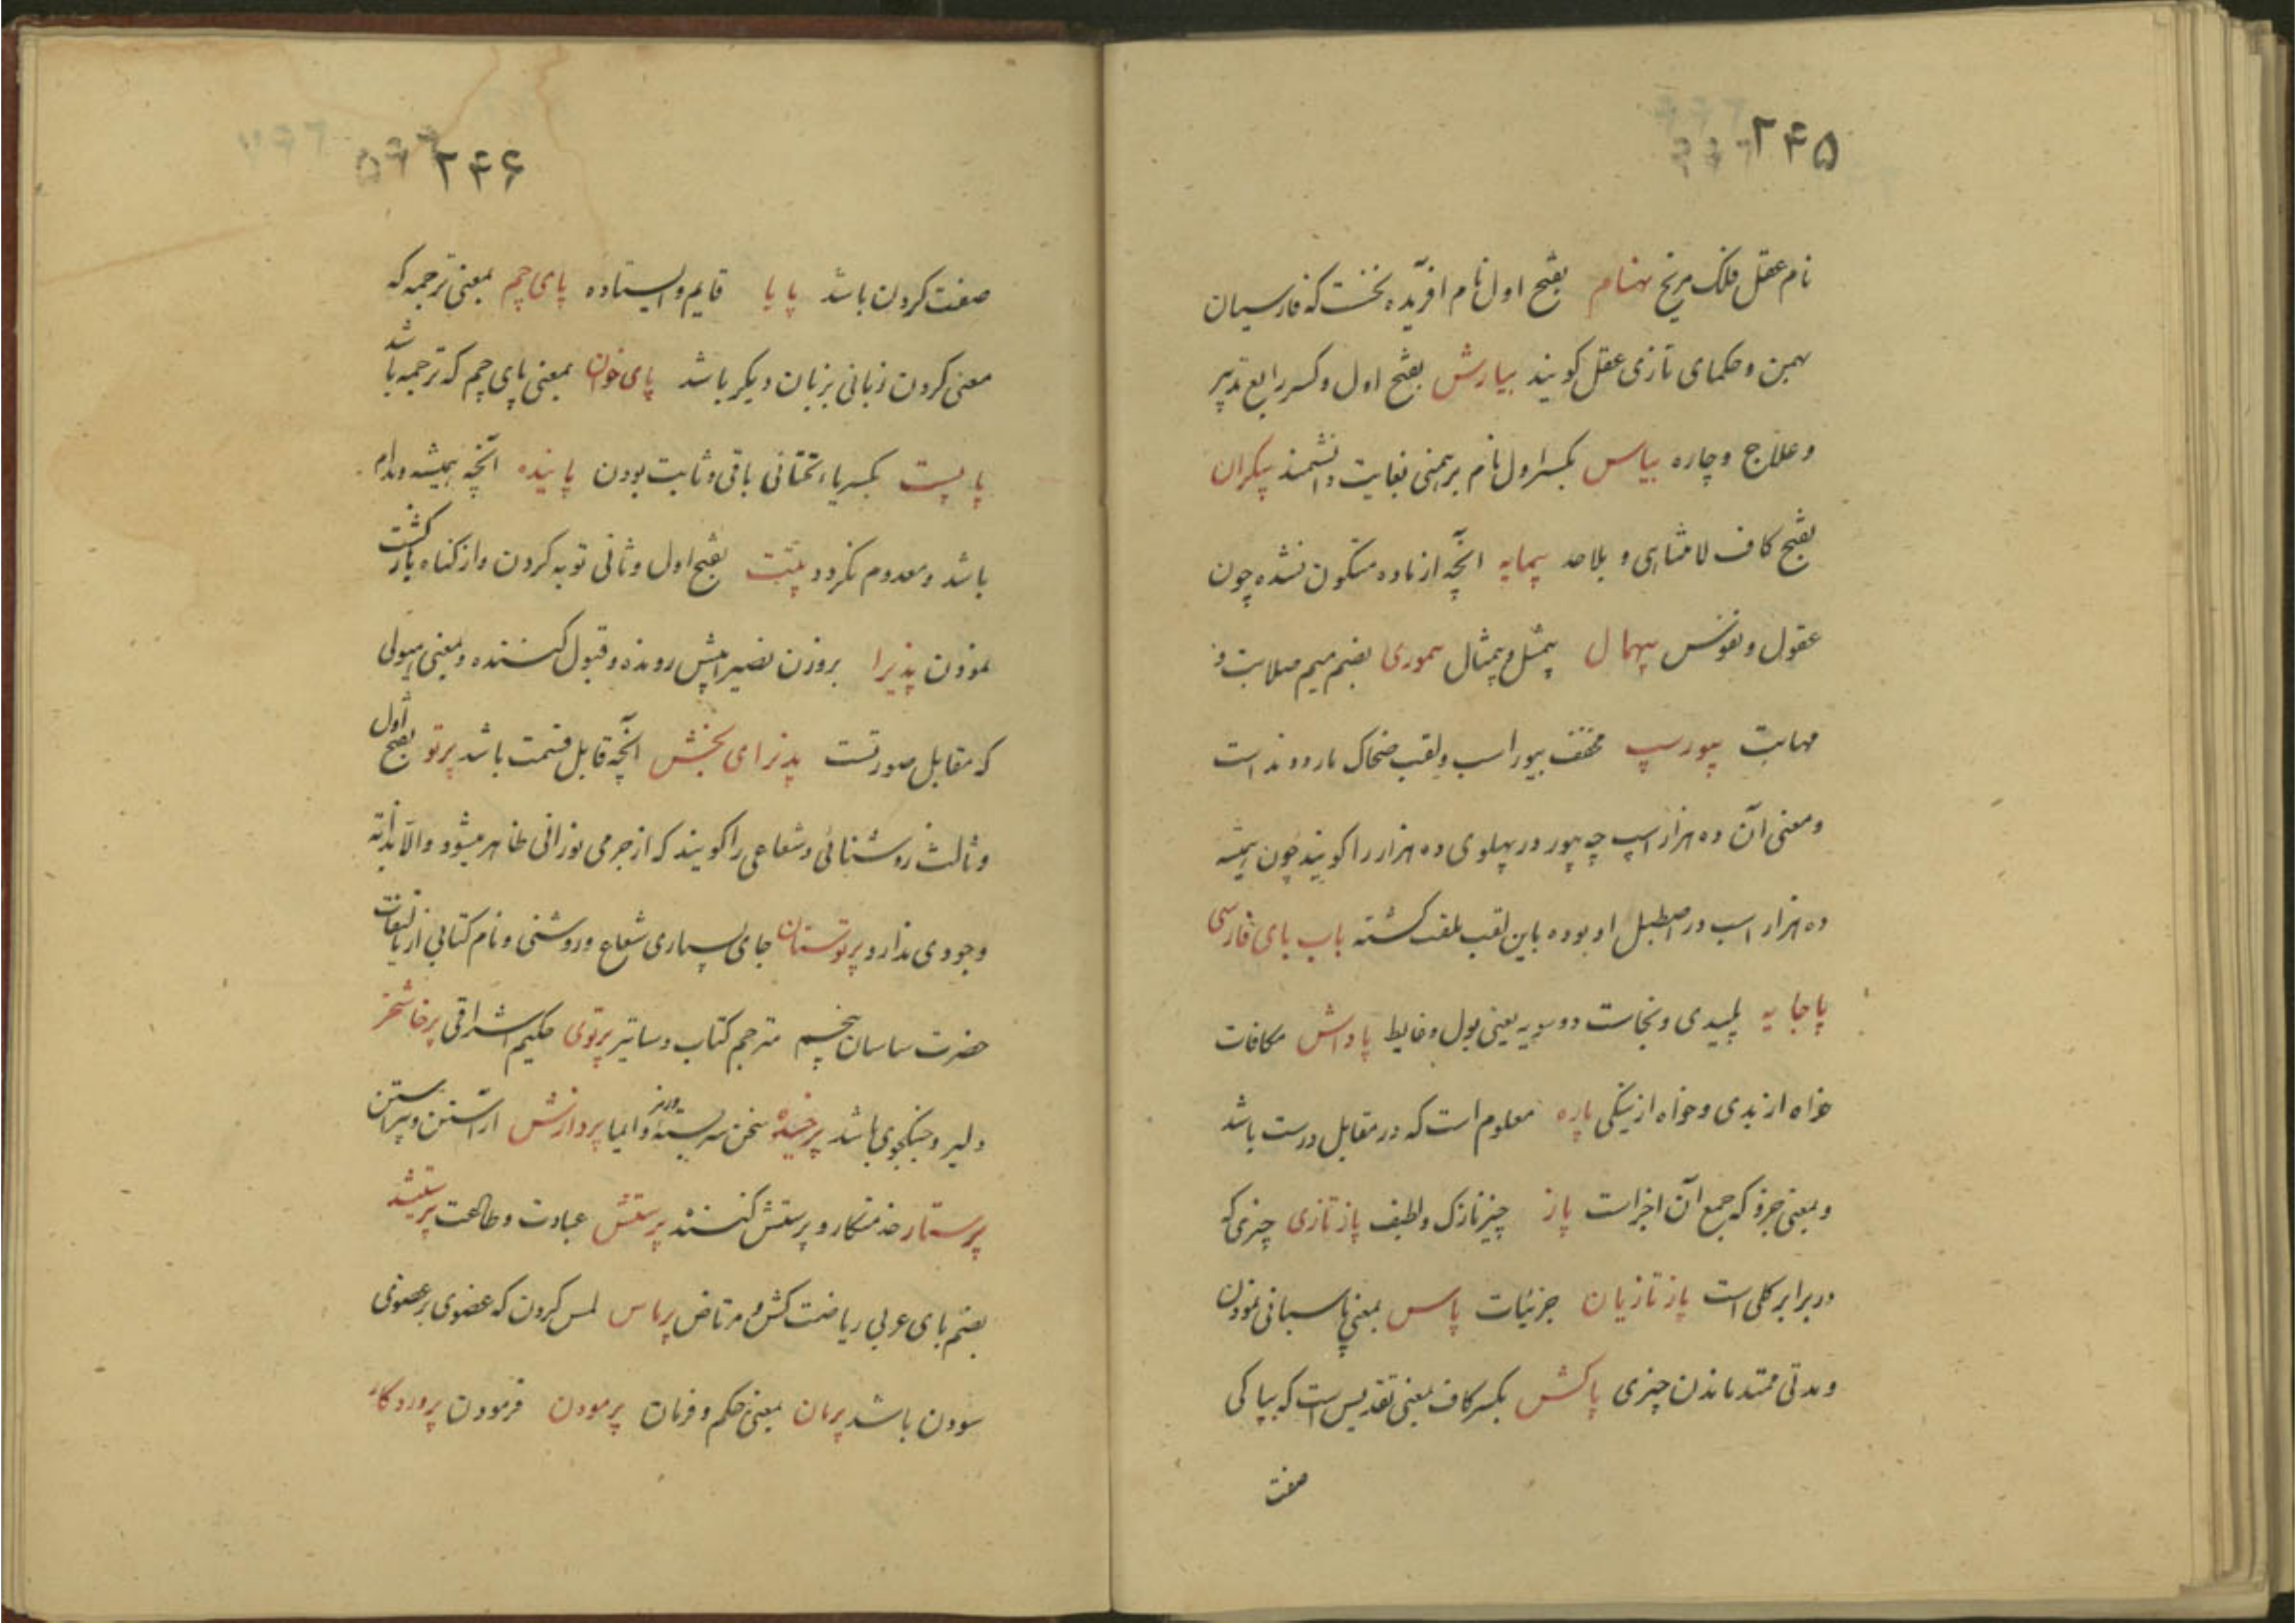 ۲۴۵
نام عقل فلک مریخ بهنام بفتح اول نام افریده نخست که فارسیان
بهمن و حکمای تازی عقل کویند بیارش بفتح اول و کسر رابع تدبیر
و علاج و چاره بیاس بکسر اول نام برهمنی بغایت دانشمند بیکران
بفتح کاف لامتناهی و بلاحد بیمایه انچه از ماده متکون نشده چون
عقول و نفوس بیهمال بیمثل و بیمثال بیموری بضم میم صلابت و
مهابت بیورسپ مخفف بیوراسب و لقب ضحاک ماردوند است
و معنی آن ده هزار اسپ چه بیور در پهلوی ده هزار را کویند چون همیشه
ده هزار اسب در اصطبل او بوده باین لقب ملقب کشته باب بای فارسی
پاجایه پلیدی و نجاست دوسویه یعنی بول و غایط پاداش مکافات
خواه از بدی و خواه از نیکی پاره معلوم است که در مقابل درست باشد
و بمعنی جزو که جمع آن اجزاست پاز چیز نازک و لطیف پازتازی چیزی که
در برابر کلی است پازتازیان جزئیات پاس بمعنی پاسبانی نمودن
و مدتی ممتد ماندن چیزی پاکش بکسر کاف بمعنی تقدیس است که بپاکی
صفت
۲۴۶
صفت کردن باشد پایا قایم و ایستاده پای چم بمعنی ترجمه که
معنی کردن زبانی بزبان دیکر باشد پای خوان بمعنی پای چم که ترجمه باشد
پایست بکسر یاء تحتانی باقی و ثابت بودن پاینده انچه همیشه و مدام
باشد و معدوم نکردد پتت بفتح اول و ثانی توبه کردن و از کناه بازکشت
نمودن پذیرا بروزن نصیرا پیش رونده و قبول کننده و بمعنی هیولی
که مقابل صورتست پذیرای بخشش انچه قابل قسمت باشد پرتو بفتح اول
و ثالث روشنائی و شعاعی را کویند که از جرمی نورانی ظاهر میشود والا بذاته
وجودی ندارد پرتوستان جای بسیاری شعاع و روشنی و نام کتابی از تالیفات
حضرت ساسان پنجم مترجم کتاب دساتیر پرتوی حکیم اشراقی پرخاشخر
دلیر و جنکجوی باشد پرخیده سخن سربسته و رمز و ایما پردازش اراستن و پیراستن
پرستار خدمتکار و پرستش کننده پرستش عبادت و طاعت
بضم بای عربی ریاضت کش و مرتاض پرماس لمس کردن که عضوی بر عضوی
سودن باشد پرمان بمعنی حکم و فرمان پرمودن فرمودن پروردکار